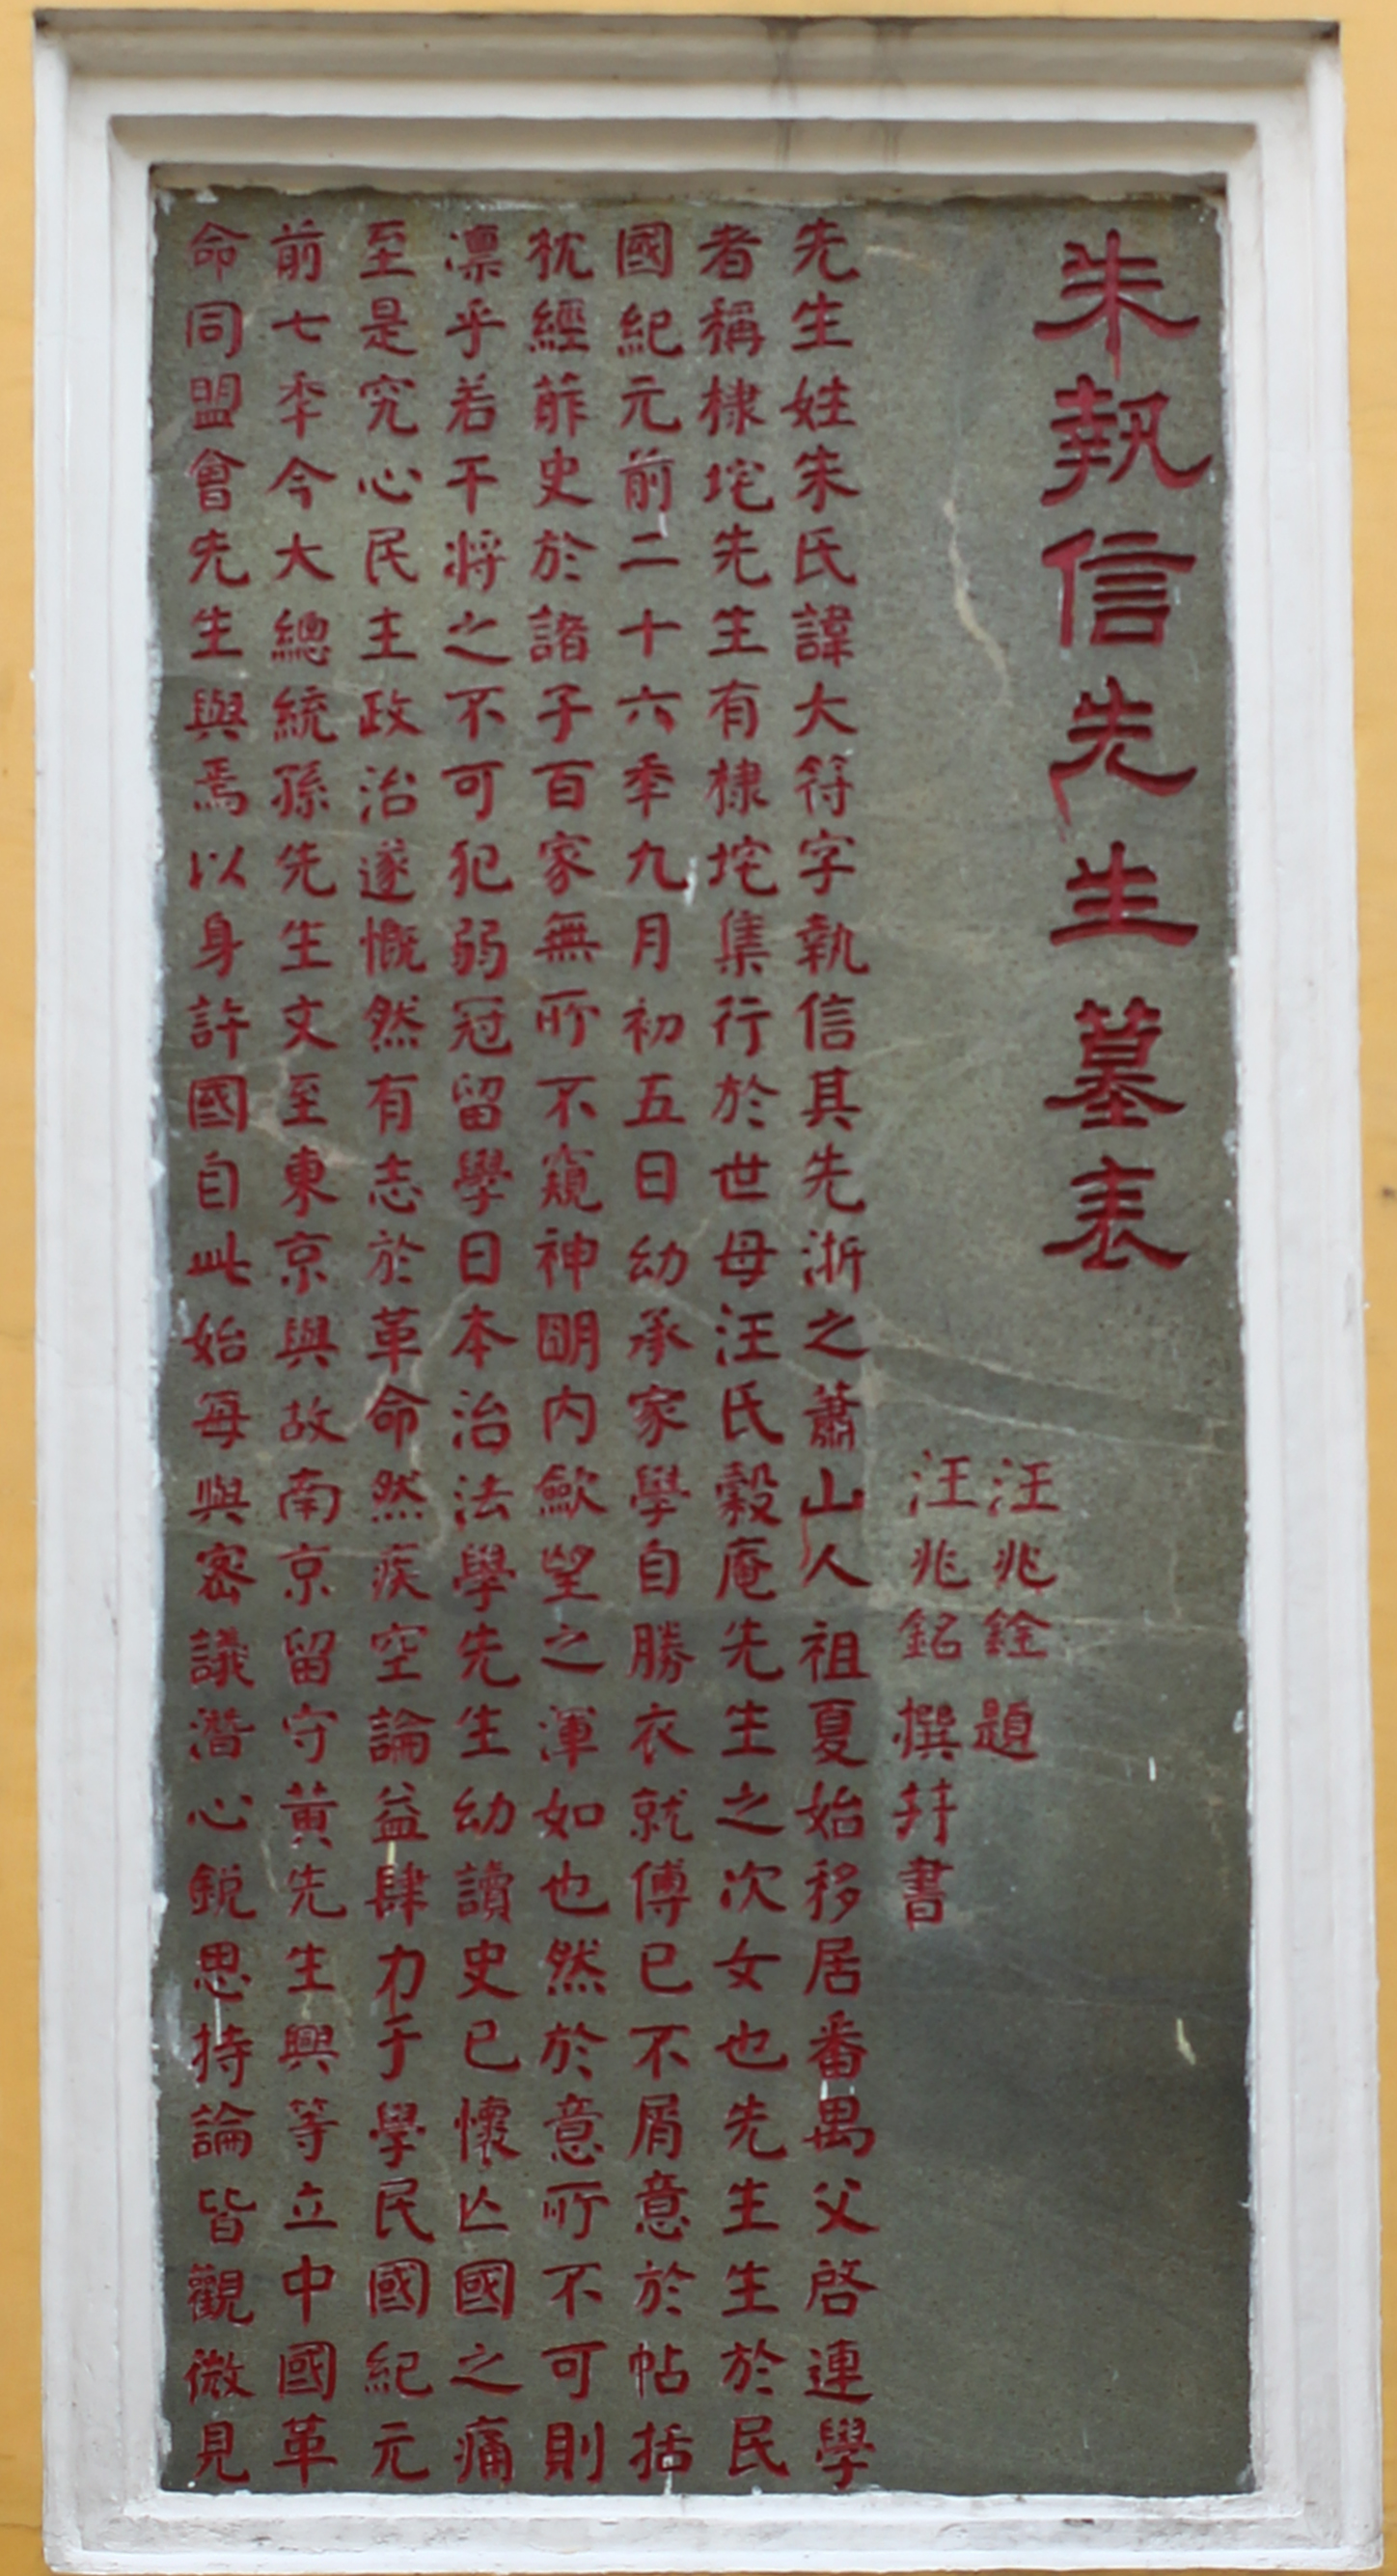 朱執信先生墓表
汪兆銓題
汪兆銘撰并書
先生姓朱氏諱大符字執信其先浙之蕭山人祖夏始移居番禺父啓連學
者稱棣垞先生有棣垞集行於世母汪氏穀庵先生之次女也先生生於民
國紀元前二十六年九月初五日幼承家學自勝衣就傅已不屑意於帖括
枕經葄史於諸子百家無所不窺神朙内歛望之渾如也然於意所不可則
凛乎若干将之不可犯弱冠留學日本治法學先生幼讀史已懷亾國之痛
至是究心民主政治遂慨然有志於革命然疾空論益肆力于學民國紀元
前七年今大總統孫先生文至東京與故南京留守黄先生興等立中國革
命同盟會先生與焉以身許國自此始每與密議潛心銳思持論皆觀微見